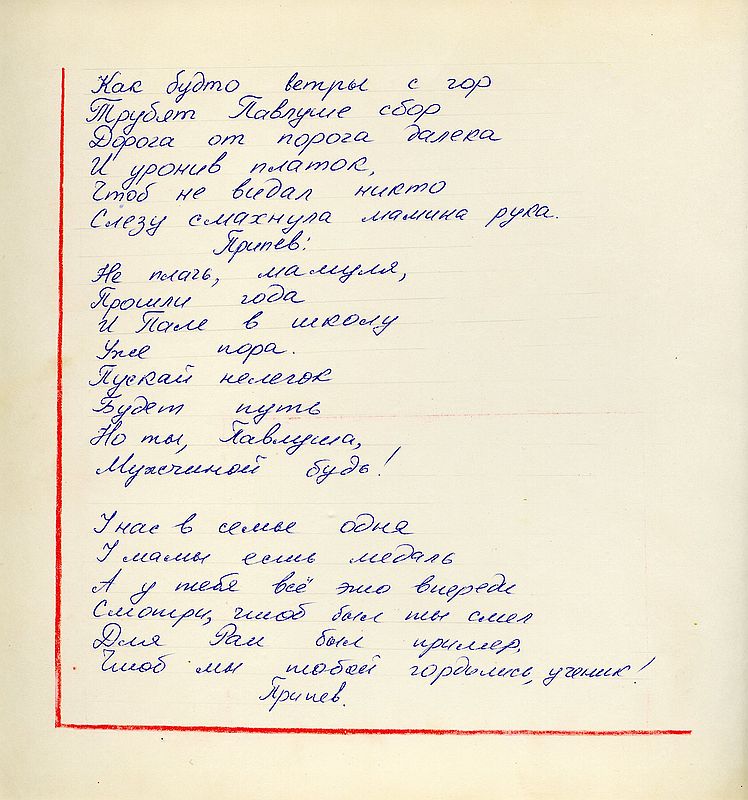 Как будто ветры с гор
Трубят Павлуше сбор
Дорога от порога далека
И уронив платок,
Чтоб не видал никто
Слезу смахнула мамина рука.
Припев:
Не плачь, мамуля,
Прошли года
И Пале в школу
Уже пора.
Пускай нелегок
Будет путь
Но ты, Павлуша,
Мужчиной будь!
У нас в семье одна
У мамы есть медаль
А у тебя всё это впереди
Смотри, чтоб был ты смел
Для Рам был пример,
Чтоб мы тобой гордились, ученик!
Припев.